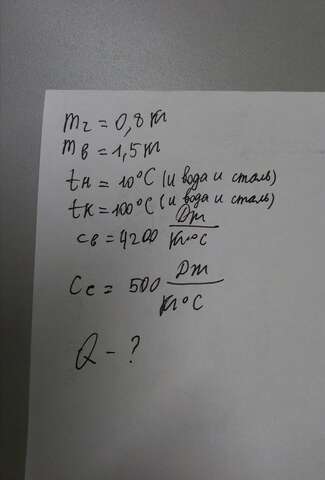 m₂ = 0,8 кг
mв = 1,5 кг
tн = 10°C (и вода и сталь)
tк = 100°C (и вода и сталь)
cв = 4200 Дж/кг°C
Cс = 500 Дж/кг°C
Q - ?